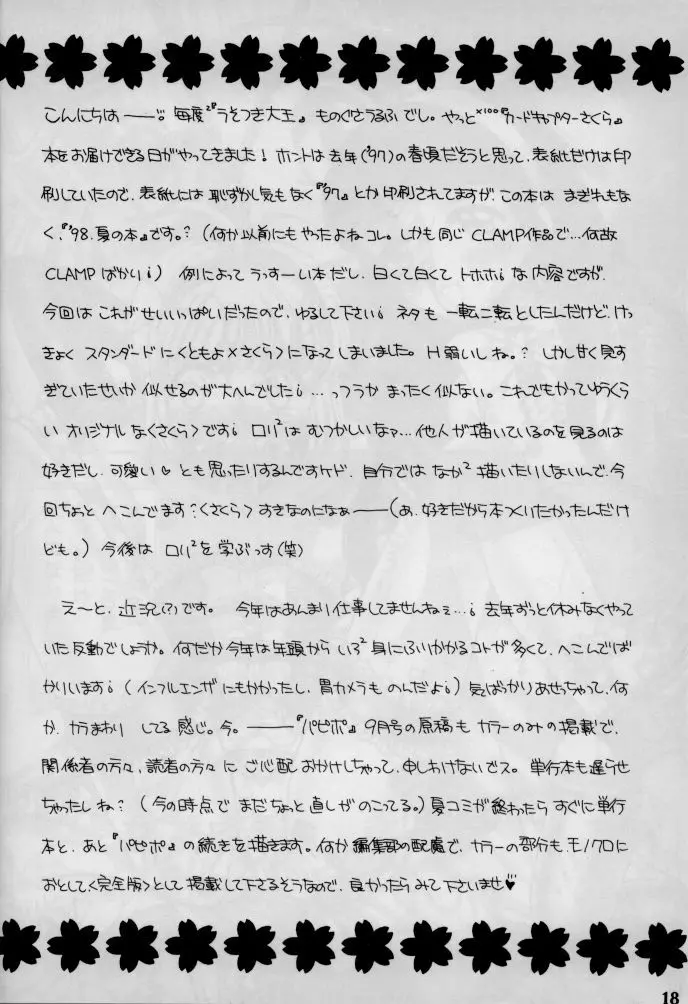 こんにちはーー♡ 毎度²『うそつき大王』ものぐさうるふでし。やっと×100『カードキャプターさくら』
本をお届けできる日がやってきました！ホントは去年('97)の春頃だそうと思って、表紙だけは印
刷していたので、表紙には恥ずかし気もなく『'97』とか印刷されてますが、この本は まぎれもな
く、『'98.夏の本』です。？（何か以前にもやったよねコレ。しかも同じ CLAMP作品で…何故
CLAMPばかり¡）例によって うっすーい本だし、白くて白くて トホホ¡な内容ですが、
今回は これがせいいっぱいだったので、ゆるして下さい¡ ネタも 一転二転としたんだけど、けっ
きょく スタンダードに〈ともよ×さくら〉になってしまいました。H弱いしね。？ しかし甘く見す
ぎていたせいか 似せるのが大へんでした¡…っつうか まったく似ない。これでもかってゆうくら
い オリジナルな〈さくら〉です¡ ロリ²は むつかしいなァ…他人が描いているのを見るのは
好きだし、可愛い♡ とも思ったりするんですケド、自分では なか²描いたりしないんで、今
回ちょと へこんでます？〈さくら〉すきなのになぁーー（あ、好きだから本つくりたかったんだけ
ども。）今後は ロリ²を学ぶっす（笑）
え〜と、近況(?)です。 今年はあんまり仕事してませんねぇ…¡ 去年ずっと休みなくやって
いた反動でしょうか。何だか今年は年頭から いろ²身にふりかかるコトが多くて、へこんでば
かりいます¡（インフルエンザにもかかったし、胃カメラものんだよ¡）気ばっかりあせっちゃって、何
か、カラまわり してる感じ。今。ーー『パピポ』9月号の原稿も カラーのみの掲載で、
関係者の方々、読者の方々に ご心配おかけしちゃって、申しわけないでス。単行本も遅らせ
ちゃったしね？（今の時点で まだちょっと直しがのこってる。）夏コミが終わったら すぐに単行
本と、あと『パピポ』の続きを描きます。何か 編集部の配慮で、カラーの部分も、モノクロに
おとして〈完全版〉として掲載して下さるそうなので、良かったらみて下さいませ♥
18